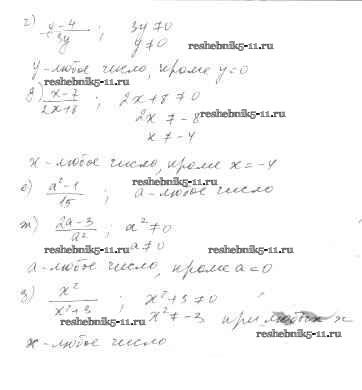 г) y-4/3y ; 3y≠0
y≠0
reshebnik5-11.ru
y-любое число, кроме y=0
reshebnik5-11.ru
д) x-7/2x+8 ; 2x+8≠0
reshebnik5-11.ru
2x≠-8
x≠-4
x-любое число, кроме x=-4
reshebnik5-11.ru
е) a²-1/15 ; a-любое число
reshebnik5-11.ru
ж) 2a-3/a² ; a²≠0
reshebnik5-11.ru a≠0 reshebnik5-11.ru
a-любое число, кроме a=0
з) x²/x²+3 ; x²+3≠0
reshebnik5-11.ru x²≠-3 при любых x
reshebnik5-11.ru
x-любое число